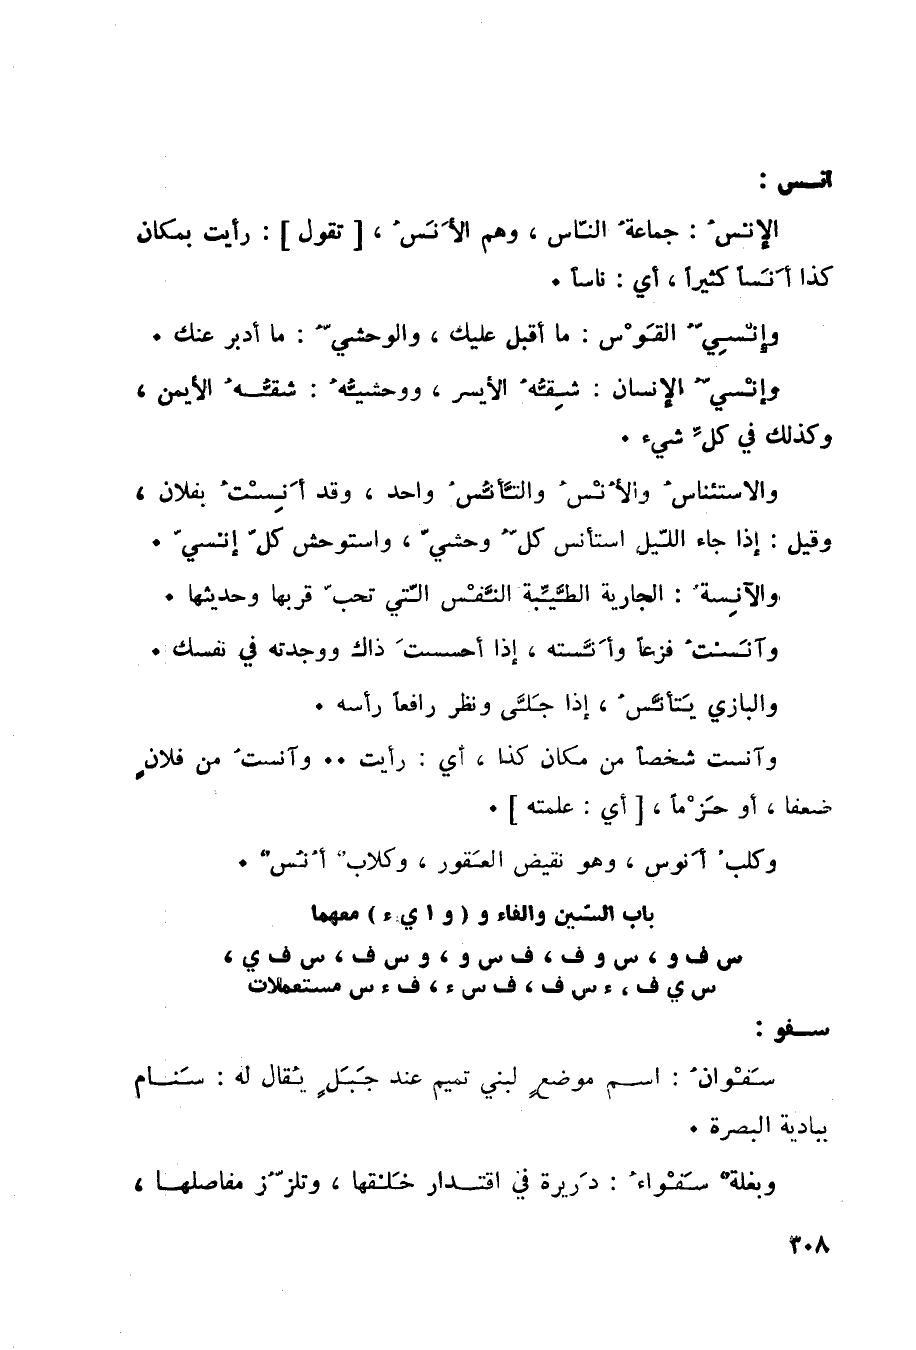 انس :
الإنْسُ : جماعةُ النّاس ، وهم الأَنَسُ ، [ تقول ] : رأيت بمكان
كذا أَنَساً كثيراً ، أي : ناساً .
وإِنْسِيُّ القَوْس : ما أقبل عليك ، والوحشيُّ : ما أدبر عنك .
وإنْسيُّ الإنسان : شِقُّهُ الأيسر ، ووحشيُّهُ : شقُّهُ الأيمن ،
وكذلك في كلِّ شيء .
والاستئناسُ والأُنْسُ والتَّأَنُّسُ واحد ، وقد أَنِسْتُ بفلان ،
وقيل : إذا جاء اللّيل استأنس كلُّ وحشيّ ، واستوحش كلُّ إنسيّ .
والآنِسةُ : الجارية الطَّيِّبة النَّفْس الّتي تحبّ قربها وحديثها .
وآنَسْتُ فزعاً وأَنَّسته ، إذا أحسستَ ذاك ووجدته في نفسك .
والبازي يَتَأَنَّسُ ، إذا جَلَّى ونظر رافعاً رأسه .
وآنست شخصاً من مكان كذا ، أي : رأيت .. وآنستُ من فلانٍ
ضعفا ، أو حَزْماً ، [ أي : علمته ] .
وكلبٌ أَنوس ، وهو نقيض العَقور ، وكلابٌ أُنُسٌ .
باب السّين والفاء و ( و ا ي ء ) معهما
س ف و ، س و ف ، ف س و ، و س ف ، س ف ي ،
س ي ف ، ء س ف ، ف س ء ، ف ء س مستعملات
سفو :
سَفْوانُ : اسم موضعٍ لبني تميم عند جَبَلٍ يُقال له : سَنام
ببادية البصرة .
وبغلةٌ سَفْواءُ : دَريرة في اقتدار خَلْقها ، وتلزّز مفاصلها ،
٣٠٨